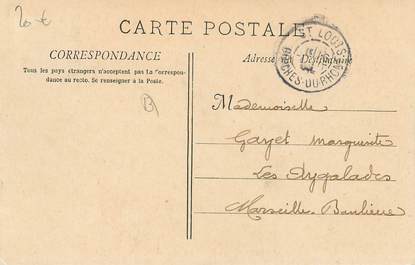 20 €
CARTE POSTALE
CORRESPONDANCE
Tous les pays étrangers n'acceptent pas la Correspon-
dance au recto. Se renseigner à la Poste.
Adresse du Destinataire
ST LOUIS
BOUCHES-DU-RHONE
Mademoiselle
Gayet Marguerite
Les Aygalades
Marseille-Banlieue